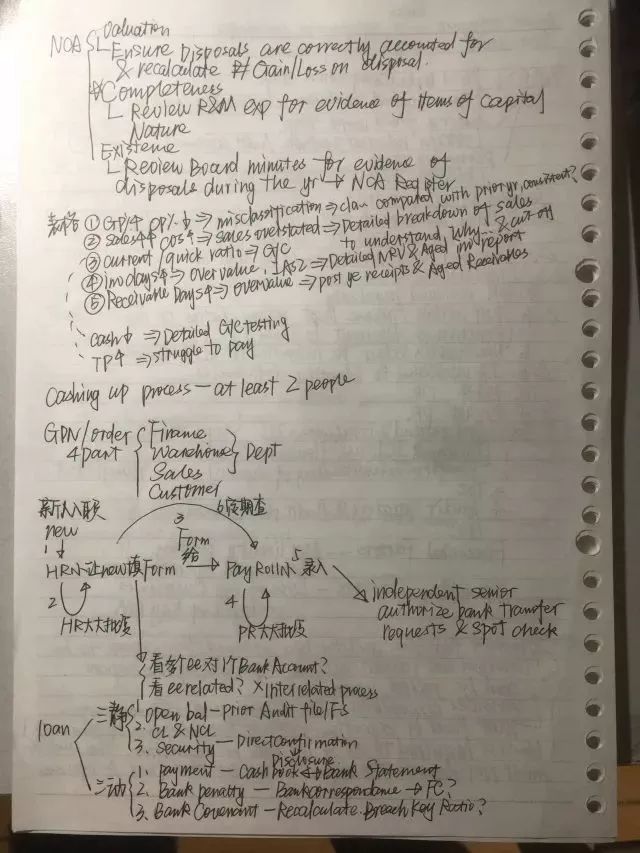 Valuation
NCAS Ensure Disposals are correctly accounted for
& recalculate Gain/Loss on disposal.
Completeness
Review R&M exp for evidence of items of capital
Nature
Existence
Review Board minutes for evidence of
disposals during the yr → NCA Register
① GP/↑ OP%↓ ⇒ misclassification ⇒ clan compated with prior yr, consistent?
② Sales↑ cos↑ ⇒ sales overstated ⇒ Detailed breakdown of sales
to understand, why... & cut off
③ current/quick ratio ⇒ G/C
④ inv days↑ ⇒ over value, IAS2 ⇒ Detailed NRV & Aged inv report
⑤ Receivable Days↑ ⇒ overvalue ⇒ post ye receipts & Aged Receivables
cash↓ ⇒ Detailed G/C testing
TP↑ ⇒ struggle to pay
Cashing up process — at least 2 people
GDN/order Finance
4 part Warehouse Dept
Sales
Customer
新人入职 6定期查
new 3 Form
给
HRM 让new填Form → PayRoll 5 录入
independent senior
2 4 authorize bank transfer
HR大大批改 PR大大批改 requests & spot check
看多ee对1个Bank Account?
看ee related? × Interrelated process
loan 三静 1. open bal — prior Audit file/FS
2. CL & NCL
3. security — Direct confirmation
Disclosure
三动 1. payment — Cash book ↔ Bank Statement
2. Bank penalty — Bank correspondence → FC?
3. Bank Covenant — Recalculate. Breach Key Ratio?